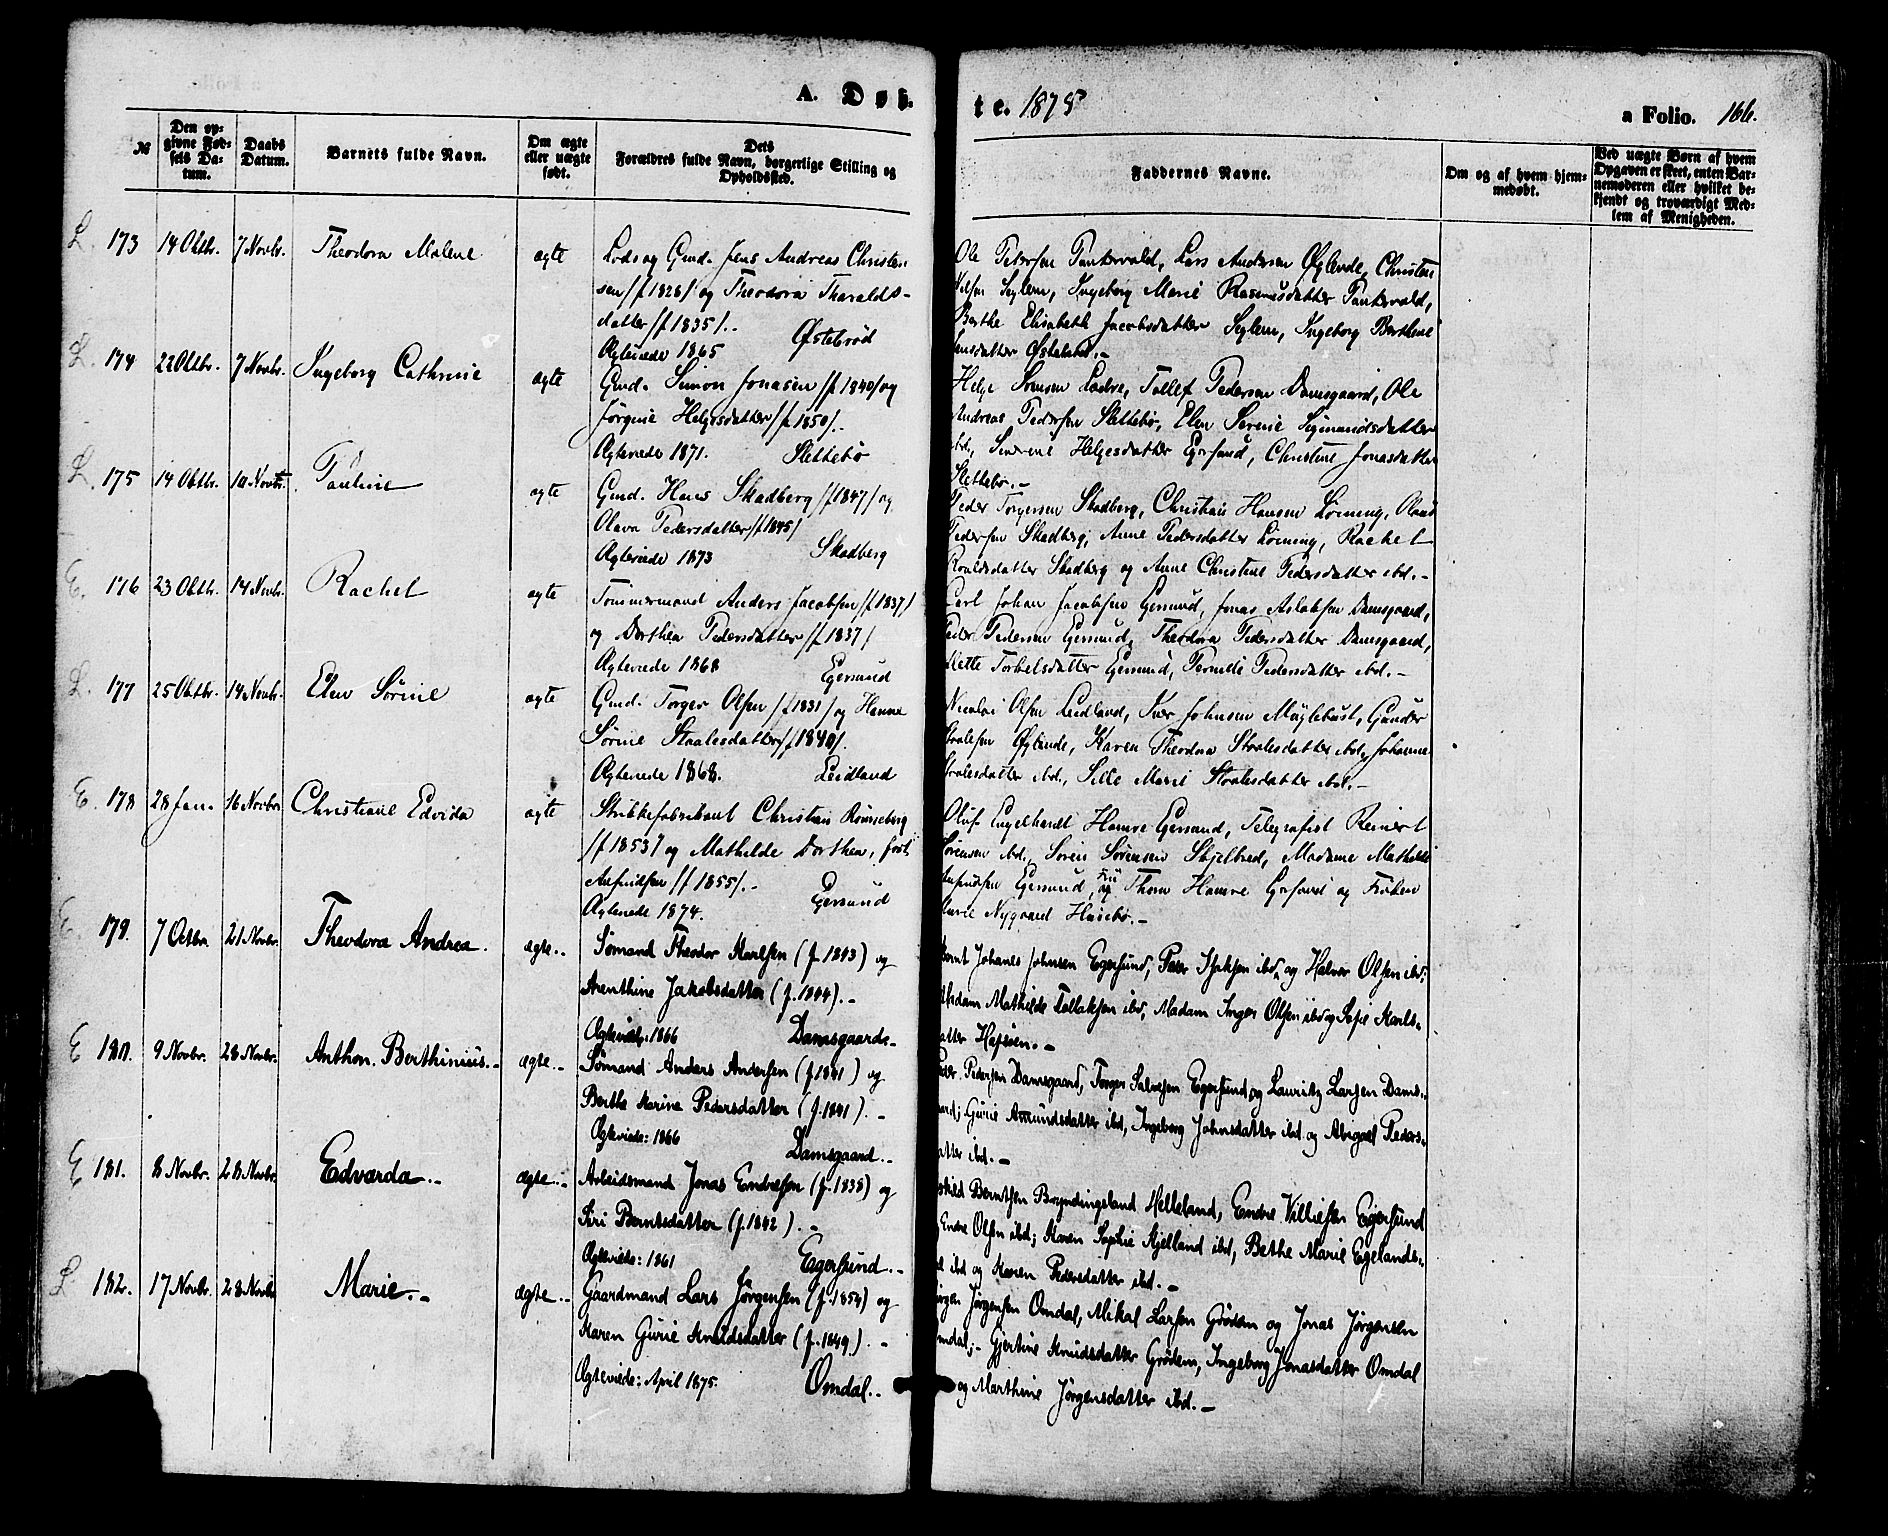 A. Døb-
te. 1875
a Folio. 166.
№
Den op-
givne Fød-
sels Da-
tum.
Daabs
Datum.
Barnets fulde Navn.
Om ægte
eller uægte
født.
Dets
Forældres fulde Navn, borgerlige Stilling og
Opholdssted.
Faddernes Navne.
Om og af hvem hjem-
medøbt.
Ved uægte Børn af hvem
Opgaven er skeet, enten Bar-
nemoderen eller hvilket be-
kjendt og troværdigt Med-
lem af Menigheden.
L. 173 14 Oktbr. 7 Novbr. Theodora Malene ægte
Lods og Gmd. Jens Andreas Christen-
sen /f 1828/ og Theodora Tharalds-
datter /f 1835/.-
Ægteviede 1865 Østebrød
Ole Petersen Tankervald, Lars Andersen Øglende, Christen
Seglem, Ingeborg Marie Rasmusdatter Tankervald,
Berthe Elisabeth Jacobsdatter Seglem, Ingeborg Berthine
Østebrød.-
L. 174 22 Oktbr. 7 Novbr. Ingeborg Cathrine ægte
Gmd. Simon Jonasen /f 1840/ og
Jørgine Helgesdatter /f 1850/.
Ægteviede 1871. Slettebø
Helge Tollef Pedersen Damsgaard, Ole
Andreas Pedersen Slettebø, Elen Serine Sigmundsdatter
ibd., Helgesdatter Egersund, Christine Jonasdatter
Slettebø.-
L. 175 14 Oktbr. 10 Novbr. Pauline ægte
Gmd. Hans Skadberg /f 1847/ og
Olava Pedersdatter /f 1845/
Ægteviede 1873 Skadberg
Peder Torgersen Skadberg, Christian Hansen Lørning, Olaus
Pedersen Skadberg, Anne Pedersdatter Lørning, Rachel
Roaldsdatter Skadberg og Anne Christine Pedersdatter ibd.-
E. 176 23 Oktbr. 14 Novbr. Rachel ægte
Tømmermand Anders Jacobsen /f 1837/
og Dorthea Pedersdatter /f 1837/
Ægteviede 1868 Egersund
Carl Johan Jacobsen Egersund, Jonas Aslaksen Damsgaard,
Peder Pedersen Egersund, Theodora Pedersdatter Damsgaard,
Mette Torkelsdatter Egersund, Pernille Pedersdatter ibd.-
L. 177 25 Oktbr. 14 Novbr. Elen Sørine ægte
Gmd. Torger Olsen /f 1831/ og Hanne
Sørine Staalesdatter /f 1840/.
Ægteviede 1868. Leidland
Nicolai Olsen Leidland, Johnsen Møglebust, Gunder
Staalesen Øglende, Karen Theodora Staalesdatter ibd., Johanne
Staalesdatter ibd., Sille Marie Staalesdatter ibd.-
E. 178 28 Jan. 16 Novbr. Christiane Edvida ægte
Christian
/f 1853/ og Mathilde Dorthea, født
Asfindsen /f 1855/.-
Ægteviede 1874. Egersund
Oluf Engelhardt Hamre Egersund, Telegrafist Reinert
Sørensen ibd., Søren Sørensen Skjelbred, Madame Mathilde
Asfindsen Egersund, Fru Thom Hamre Egersund og Frøken
Marie Nygaard Husebø.-
E. 179. 7 Octbr. 21 Novbr. Theodora Andrea. ægte..
Sømand Theodor Karlsen (f. 1843) og
Arenthine Jakobsdatter (f. 1844).-
Ægteviede: 1866 Damsgaard.-
Bernt Johanes Johnsen Egersund, Peder Isaksen ibd, og Halvor Olsen ibd;
Madam Mathilde Tollaksen ibd, Madam Inger Olsen ibd og Sofie Karls-
datter Hafsøen.-
E 180. 9 Novbr. 28 Novbr. Anthon Berthinius.- ægte.-
Sømand Anders Andersen (f. 1841) og
Berthe Karine Pedersdatter (f. 1841).-
Ægteviede: 1866 Damsgaard.-
Peder Pedersen Damsgaard, Torger Salvesen Egersund, og Lauritz Larsen Dams-
gaard; Gurie Amundsdatter ibd, Ingeborg Johnsdatter ibd og Abigael Peders-
datter ibd.-
E 181. 8 Novbr. 28 Novbr. Edvarda.- ægte.-
Arbeidsmand Jonas Endresen (f. 1838) og
Siri Berntsdatter (f. 1842).-
Ægteviede: 1861 Egersund.-
Berntsen Bryndingsland Helleland, Endre Villiesen Egersund
Endre Olsen ibd; Karen Sophie Kjelland ibd, Bethe Marie Egelands-
ibd og Karen Pedersdatter ibd.-
L 182. 17 Novbr. 28 Novbr. Marie.- ægte.-
Gaardmand Lars Jørgensen (f. 1854) og
Karen Gurie Knudsdatter (f. 1849).-
Ægteviede: April 1875. Omdal.-
Jørgen Jørgensen Omdal, Mikal Larsen Grødem og Jonas Jørgensen
Omdal;- Gjertine Knudsdatter Grødem, Ingeborg Jonasdatter Omdal
og Marthine Jørgensdatter ibd.-